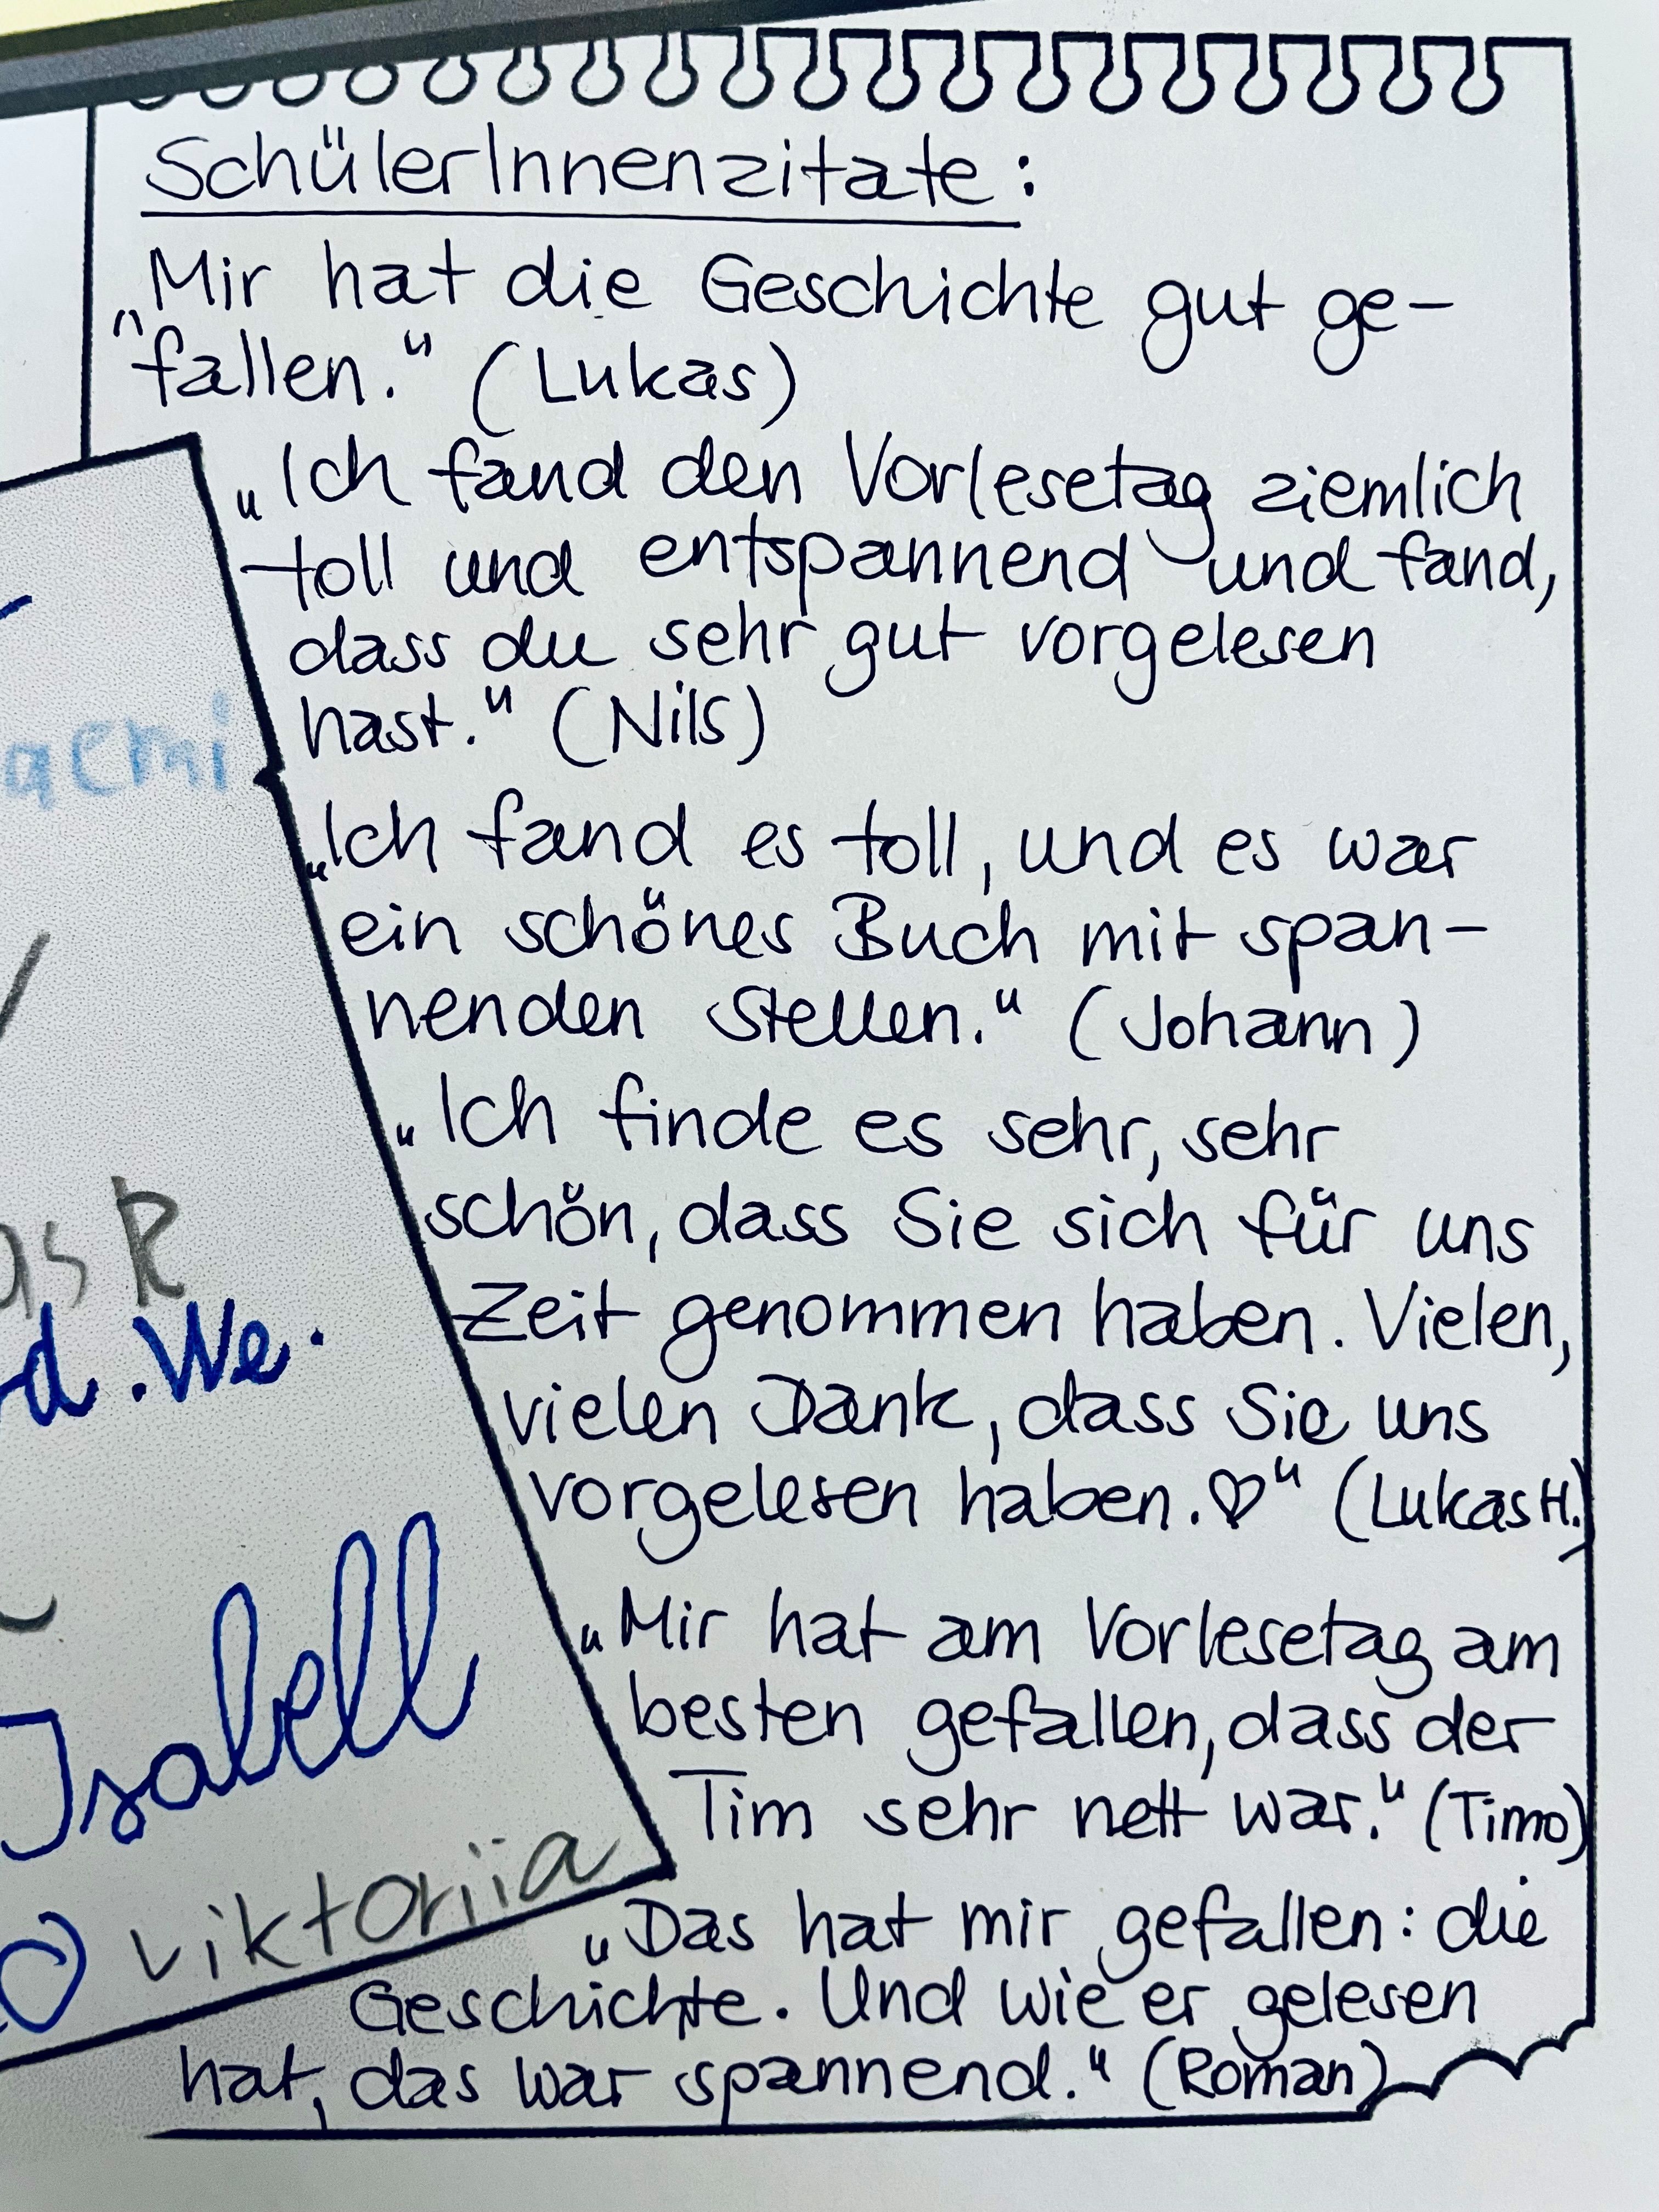 SchülerInnenzitate:
„Mir hat die Geschichte gut ge-
fallen." (Lukas)
„Ich fand den Vorlesetag ziemlich
toll und entspannend und fand,
dass du sehr gut vorgelesen
hast." (Nils)
„Ich fand es toll, und es war
ein schönes Buch mit span-
nenden Stellen." (Johann)
„Ich finde es sehr, sehr
schön, dass Sie sich für uns
Zeit genommen haben. Vielen,
vielen Dank, dass Sie uns
vorgelesen haben. ♡" (Lukas H.)
„Mir hat am Vorlesetag am
besten gefallen, dass der
Tim sehr nett war." (Timo)
„Das hat mir gefallen: die
Geschichte. Und wie er gelesen
hat, das war spannend." (Roman)
We.
Isabell
Viktoriia